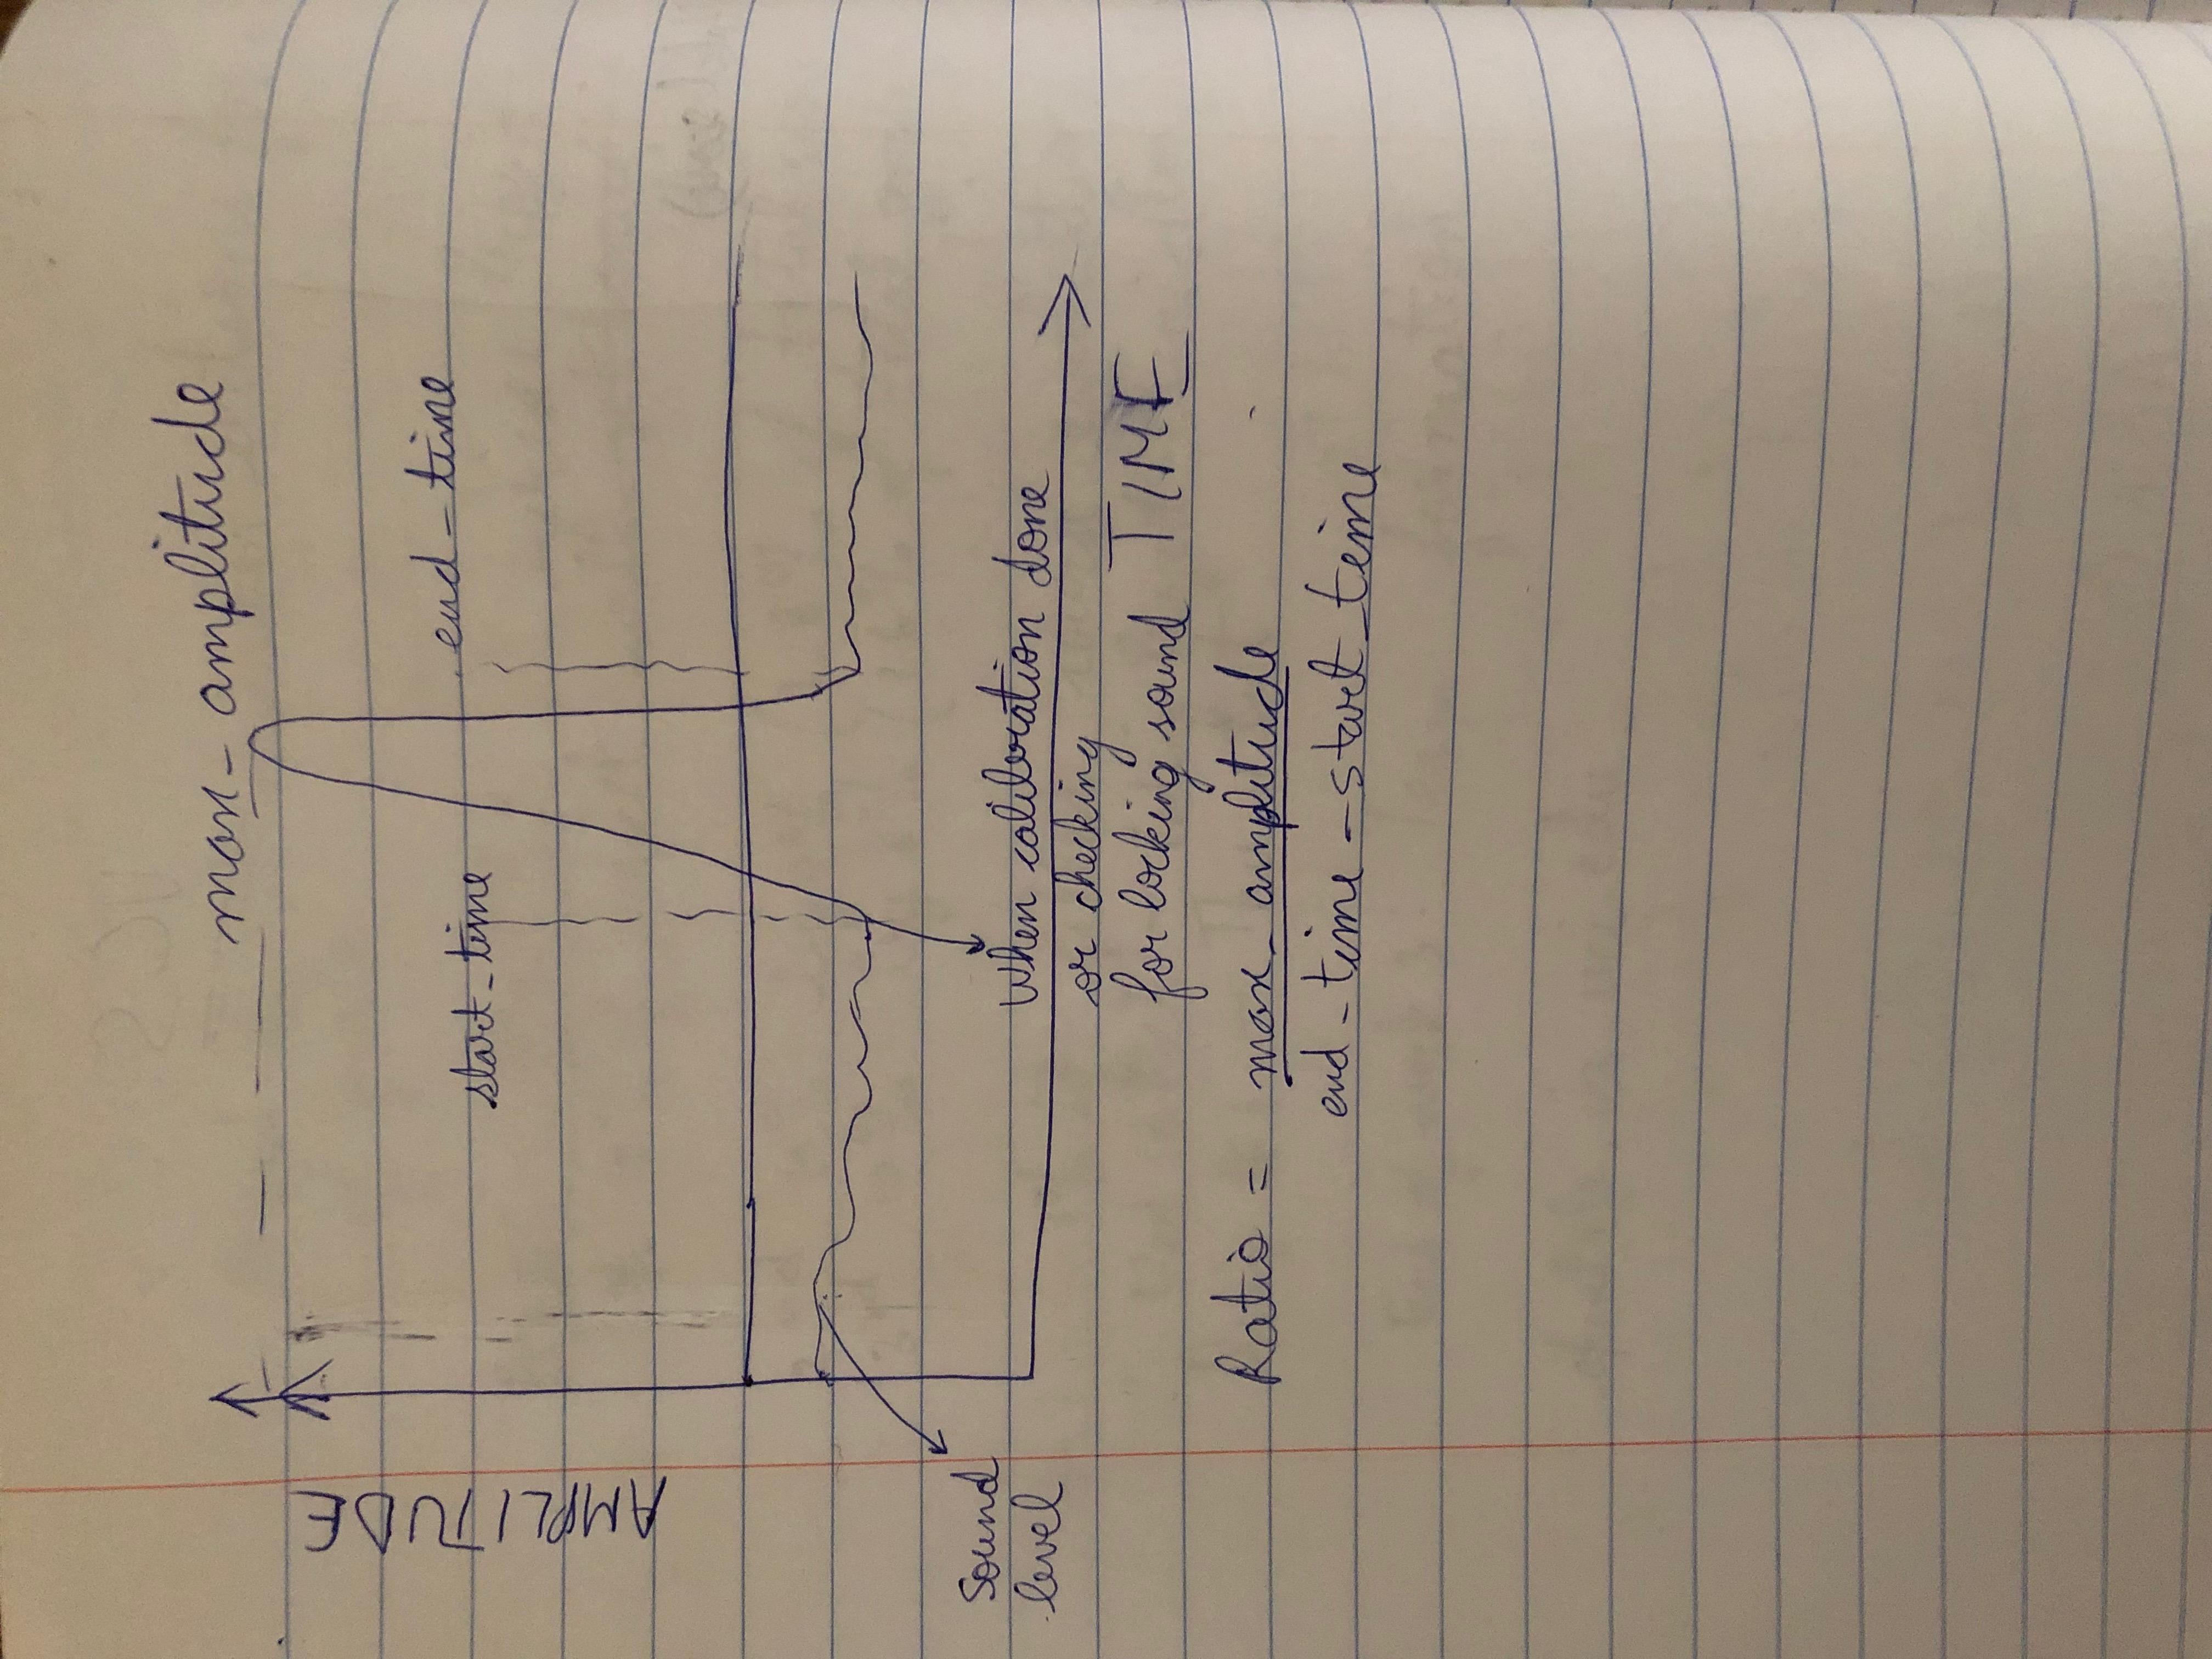 max_amplitude
AMPLITUDE
end_time
start_time
Sound
level
When calibration done
or checking
for locking sound
TIME
Ratio = max_amplitude
end_time - start_time